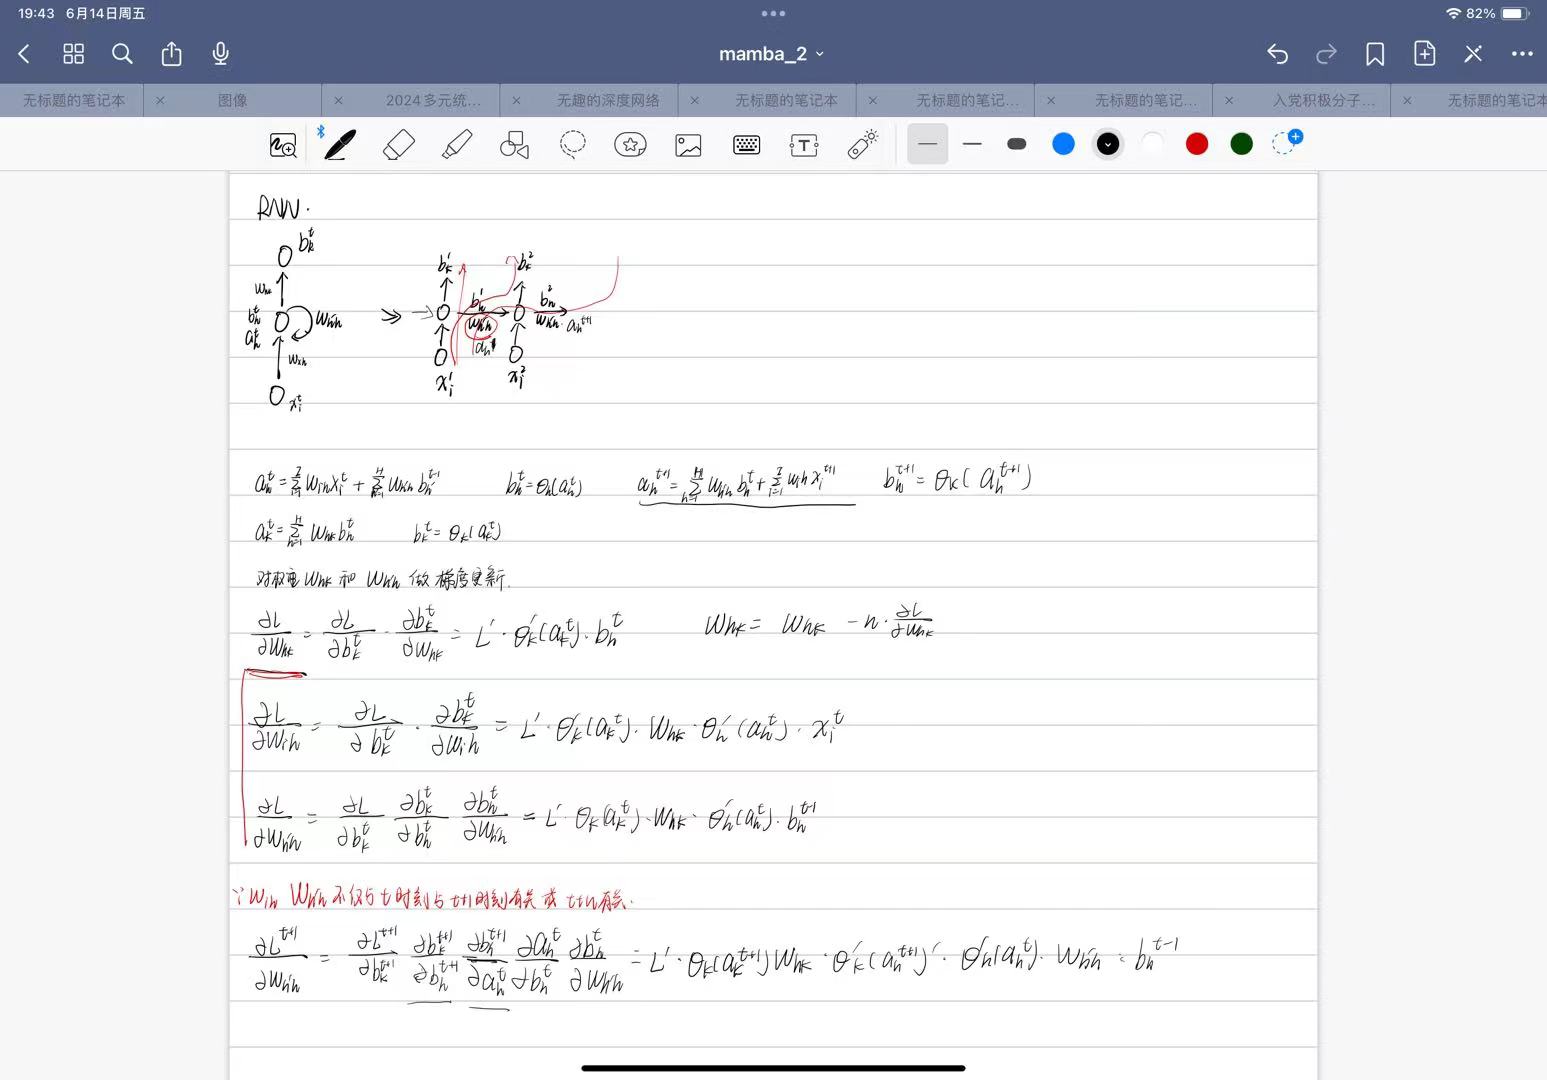 19:43 6月14日周五
82%
mamba_2
无标题的笔记本 图像 2024多元统... 无趣的深度网络 无标题的笔记本 无标题的笔记... 无标题的笔记... 入党积极分子... 无标题的笔记本
RNN.
b_k^t
w_hk
b_h^t
a_h^t
w_h'h
w_xh
x_i^t
b_k^1 b_k^2
b_h^1 b_h^2
w_h'h w_h'h a_h^{t+1}
x_i^1 x_i^2
a_h^t = \sum_{i=1}^{I} w_ih x_i^t + \sum_{h'=1}^{H} w_h'h b_h'^{t-1} b_h^t = θ_h(a_h^t) a_h^{t+1} = \sum_{h=1}^{H} w_h'h b_h^t + \sum_{i=1}^{I} w_ih x_i^{t+1} b_h^{t+1} = θ_k(a_h^{t+1})
a_k^t = \sum_{h=1}^{H} w_hk b_h^t b_k^t = θ_k(a_k^t)
对权重 w_hk 和 w_h'h 做 梯度更新.
∂L/∂w_hk = ∂L/∂b_k^t · ∂b_k^t/∂w_hk = L' · θ_k'(a_k^t) · b_h^t w_hk = w_hk - n · ∂L/∂w_hk
∂L/∂w_ih = ∂L/∂b_k^t · ∂b_k^t/∂w_ih = L' · θ_k'(a_k^t) · w_hk · θ_h'(a_h^t) · x_i^t
∂L/∂w_h'h = ∂L/∂b_k^t ∂b_k^t/∂b_h^t ∂b_h^t/∂w_h'h = L' · θ_k'(a_k^t) · w_hk · θ_h'(a_h^t) · b_h^{t-1}
∵ w_ih w_h'h 不仅与 t 时刻与 t+1 时刻有关 或 t+n 有关.
∂L^{t+1}/∂w_h'h = ∂L^{t+1}/∂b_k^{t+1} ∂b_k^{t+1}/∂b_h^{t+1} ∂b_h^{t+1}/∂a_h^t ∂a_h^t/∂b_h^t ∂b_h^t/∂w_h'h = L' · θ_k(a_k^{t+1}) w_hk · θ_k'(a_h^{t+1})' · θ_h'(a_h^t) · w_h'h · b_h^{t-1}